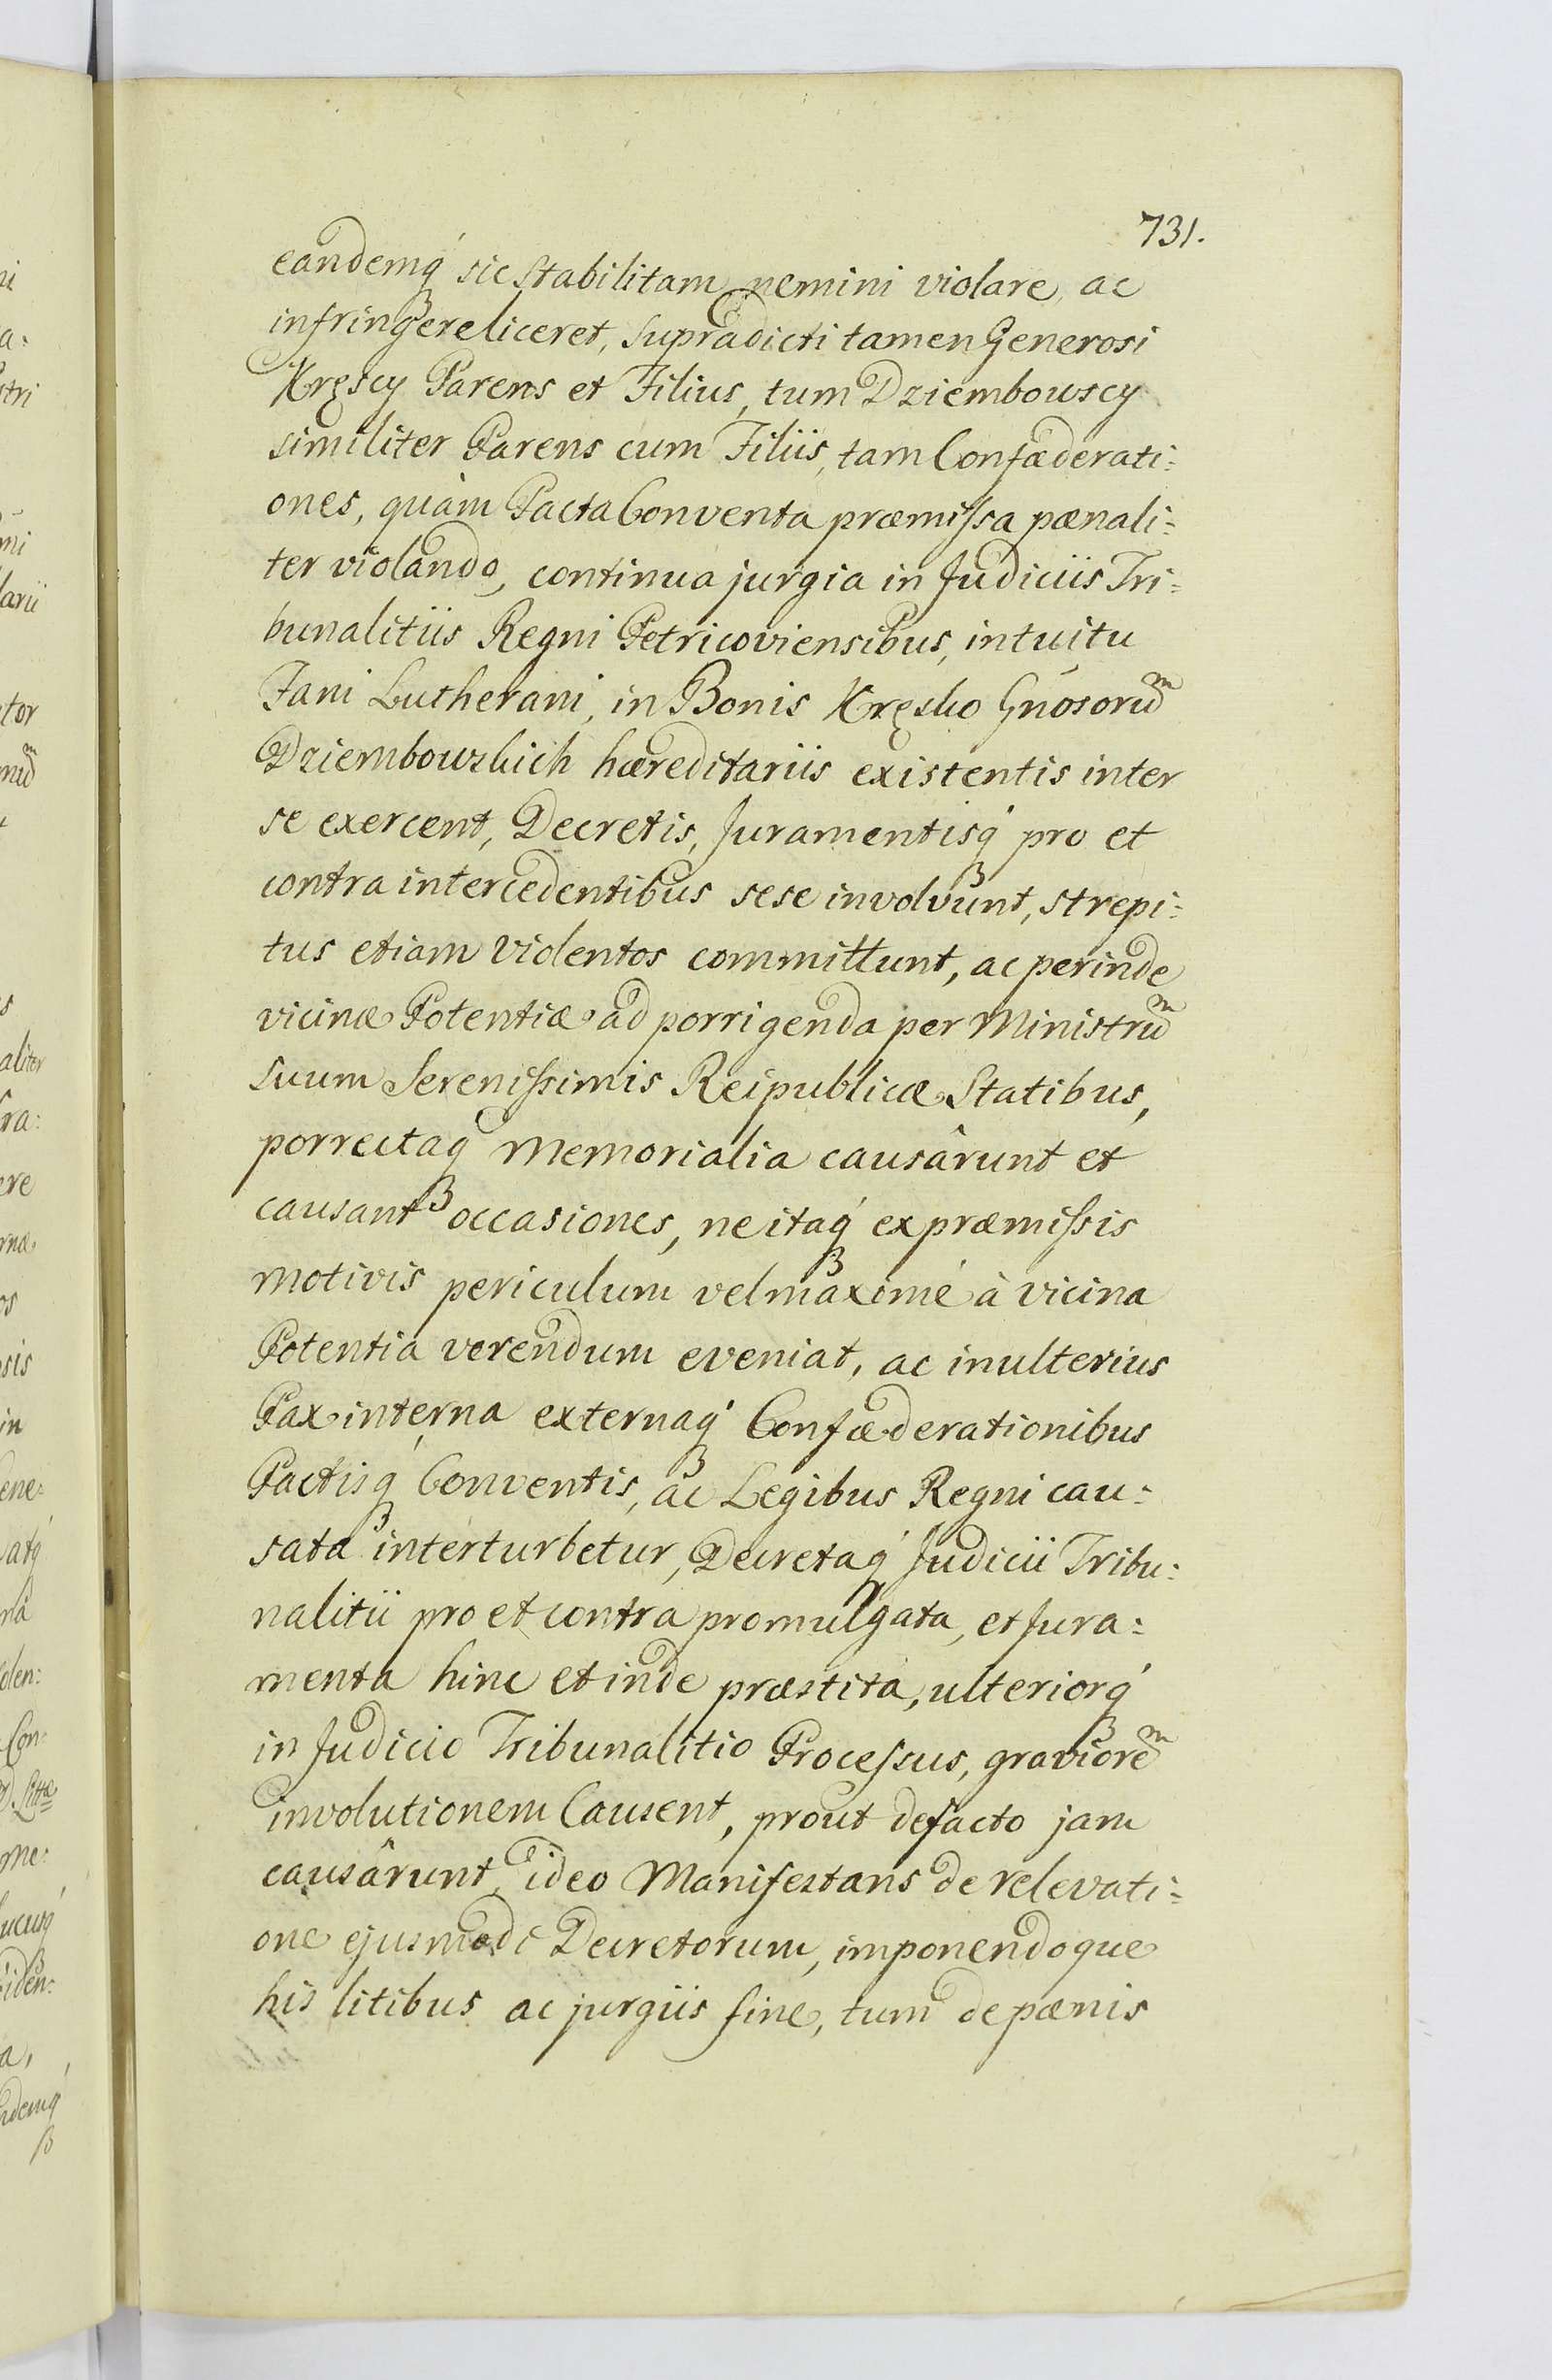 731.
eandemq́ sic stabilitam nemini violare ac
infringere liceret, supradicti tamen Generosi
Kręscy Parens et Filius, tum Dziembowscy
similiter Parens cum Filiis, tam Confæderati:
ones, quàm Pacta Conventa præmissa pænali:
ter violando, continua jurgia in Judiciis Tri:
bunalitiis Regni Petricoviensibus, intuitu
Fani Lutherani, in Bonis Kręsko Gnosorum
Dziembowskich hæreditariis existentis inter
se exercent, Decretis, Juramentisq́ pro et
contra intercedentibus sese involvunt, strepi:
tus etiam violentos committunt, ac perinde
vicinæ Potentiæ ad porrigenda per Ministrum
suum Serenissimis Reipublicæ Statibus,
porrectaq́ Memorialia causârunt et
causant occasiones, ne itaq́ ex præmissis
motivis periculum vel maximé à vicina
Potentia verendum eveniat, ac in ulterius
Pax interna externaq́ Confæderationibus
Pactisq́ Conventis, ac Legibus Regni cau:
sata interturbetur, Decretaq́ Judicii Tribu:
nalitii pro et contra promulgata, et Jura:
menta hinc et inde præstita, ulteriorq́
in Judicio Tribunalitio Processus, graviorem
involutionem Causent, prout de facto jam
causârunt, ideo Manifestans de relevati:
one ejusmodi Decretorum, imponendoque
his litibus ac jurgiis fine, tum de pænis